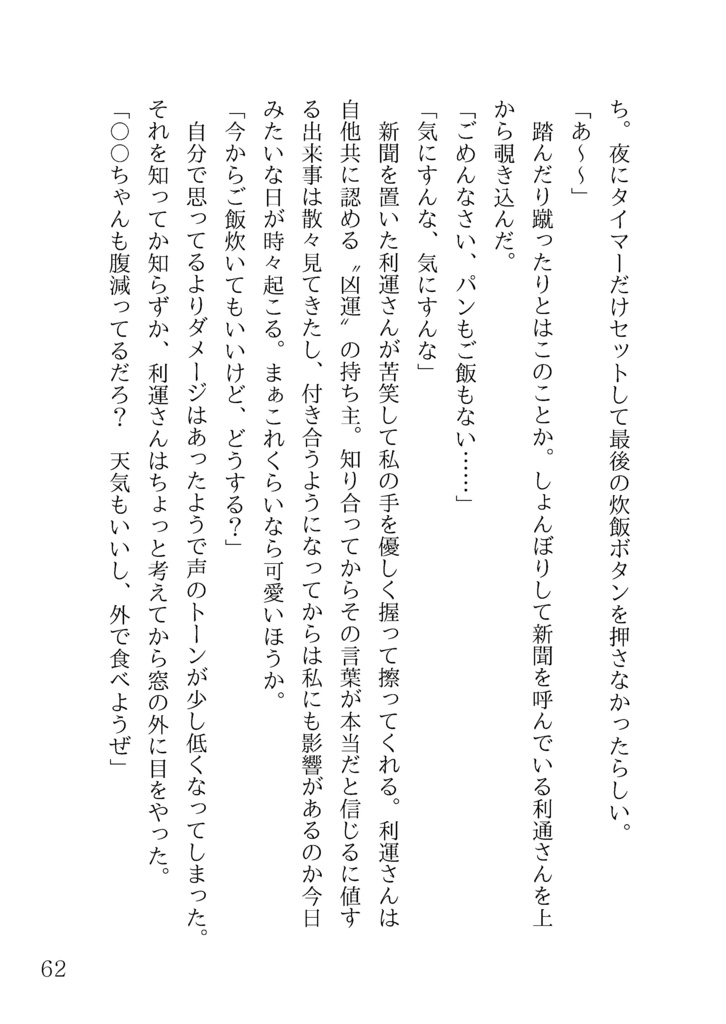 ち。夜にタイマーだけセットして最後の炊飯ボタンを押さなかったらしい。
「あ～～」
踏んだり蹴ったりとはこのことか。しょんぼりして新聞を呼んでいる利通さんを上
から覗き込んだ。
「ごめんなさい、パンもご飯もない……」
「気にすんな、気にすんな」
新聞を置いた利運さんが苦笑して私の手を優しく握って擦ってくれる。利運さんは
自他共に認める〝凶運〟の持ち主。知り合ってからその言葉が本当だと信じるに値す
る出来事は散々見てきたし、付き合うようになってからは私にも影響があるのか今日
みたいな日が時々起こる。まぁこれくらいなら可愛いほうか。
「今からご飯炊いてもいいけど、どうする？」
自分で思ってるよりダメージはあったようで声のトーンが少し低くなってしまった。
それを知ってか知らずか、利運さんはちょっと考えてから窓の外に目をやった。
「○○ちゃんも腹減ってるだろ？　天気もいいし、外で食べようぜ」
62